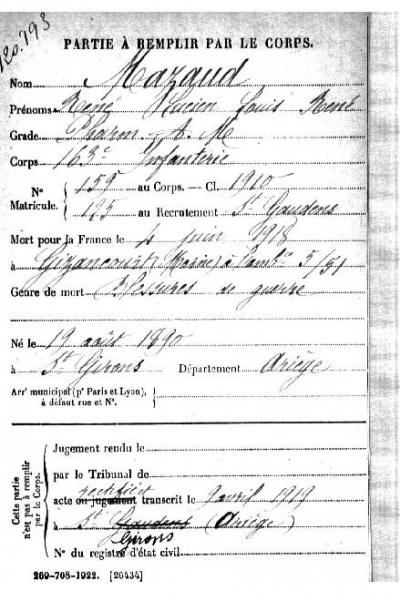 120.793
PARTIE À REMPLIR PAR LE CORPS.
Nom Mazaud
Prénoms René Lucien Louis René
Grade Pharm. A. M
Corps 163e Infanterie
N° Matricule. { 159 au Corps. — Cl. 1910
195 au Recrutement St Gaudens
Mort pour la France le 4 juin 1918
à Gizancourt (Marne) à l'ambce 5/51
Genre de mort Blessures de guerre
Né le 19 août 1890
à St Girons Département Ariège
Arrt municipal (pr Paris et Lyon),
à défaut rue et N°.
Cette partie n'est pas à remplir par le Corps.
Jugement rendu le
par le Tribunal de
rectifié
acte ou jugement transcrit le 9 avril 1919
à St Gaudens (Ariège)
Girons
N° du registre d'état civil
269-708-1922. [26434]